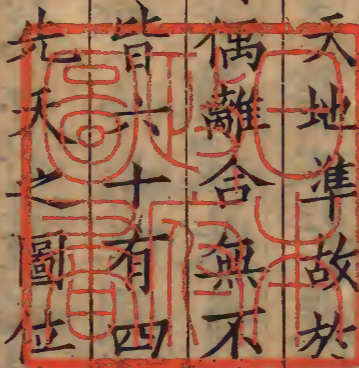 天地準故於
偶離合無不
皆六十有四
先天之圖位